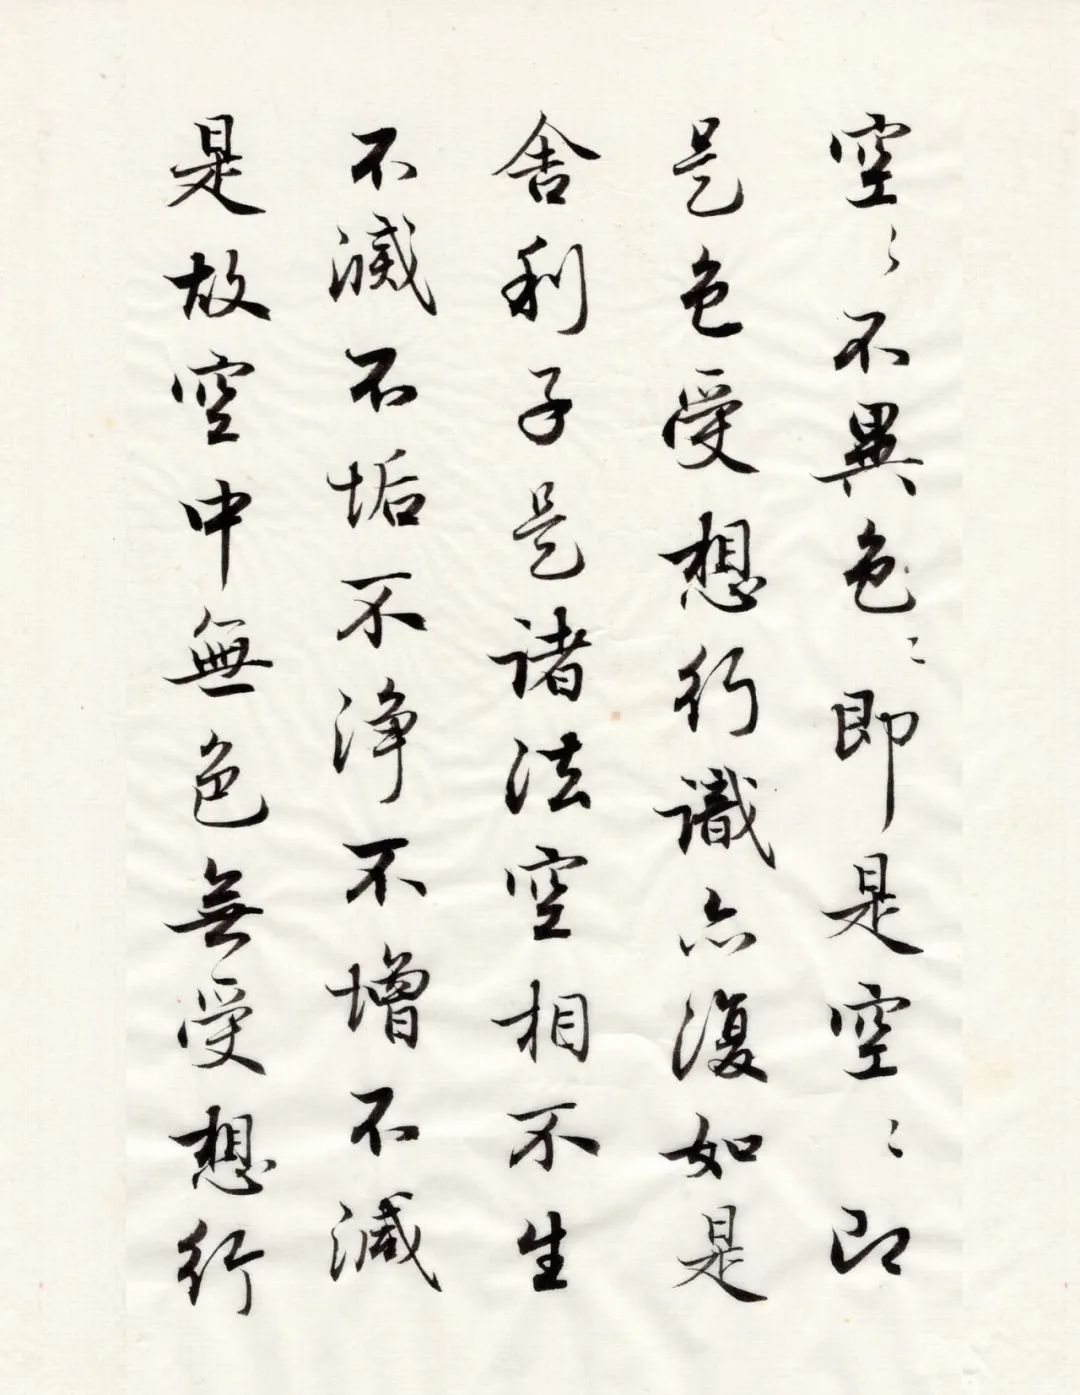 空〻不異色〻即是空〻即
是色受想行識亦復如是
舍利子是諸法空相不生
不滅不垢不浄不增不減
是故空中無色無受想行